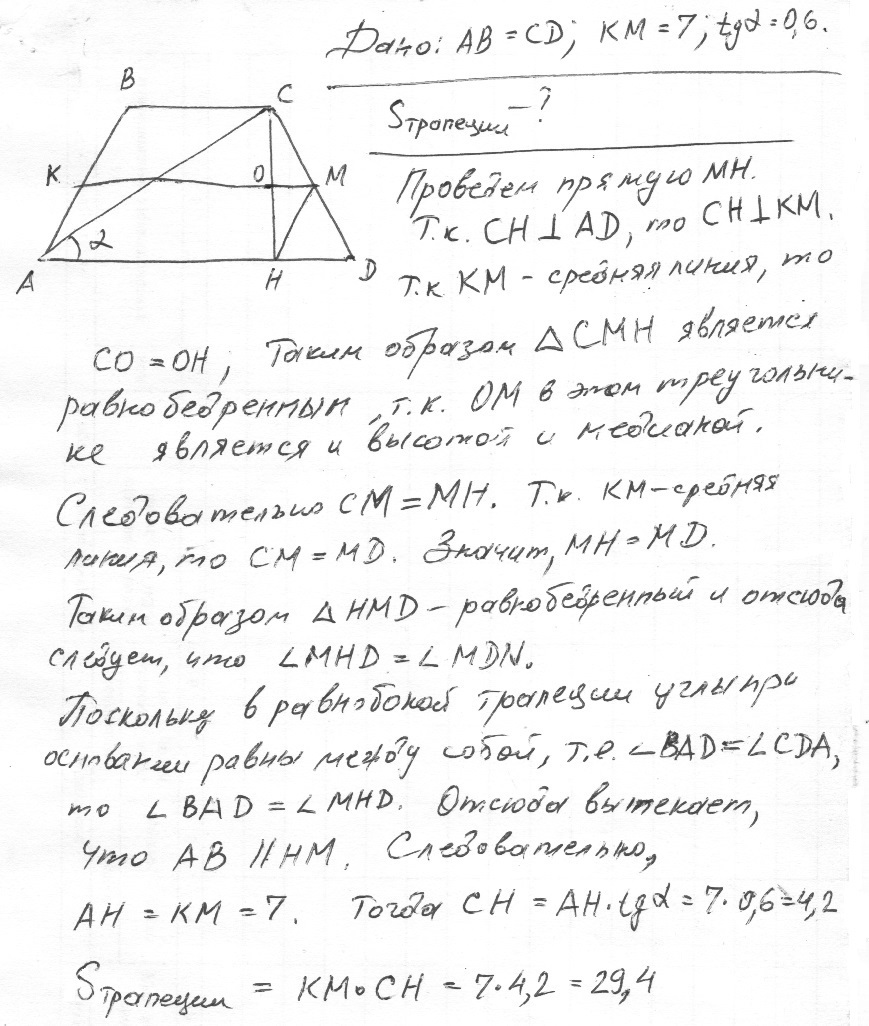 Дано: AB = CD; KM = 7; tgα = 0,6.
Sтрапеции – ?
B
C
K
O
M
α
A
H
D
Проведем прямую MH.
Т.к. CH ⊥ AD, то CH ⊥ KM.
Т.к KM – средняя линия, то
CO = OH; Таким образом △CMH является
равнобедренным, т.к. OM в этом треугольни-
ке является и высотой и медианой.
Следовательно CM = MH. Т.к. KM – средняя
линия, то CM = MD. Значит, MH = MD.
Таким образом △HMD – равнобедренный и отсюда
следует, что ∠MHD = ∠MDN.
Поскольку в равнобокой трапеции углы при
основании равны между собой, т.е. ∠BAD = ∠CDA,
то ∠BAD = ∠MHD. Отсюда вытекает,
что AB // HM. Следовательно,
AH = KM = 7. Тогда CH = AH · tgα = 7 · 0,6 = 4,2
Sтрапеции = KM · CH = 7 · 4,2 = 29,4